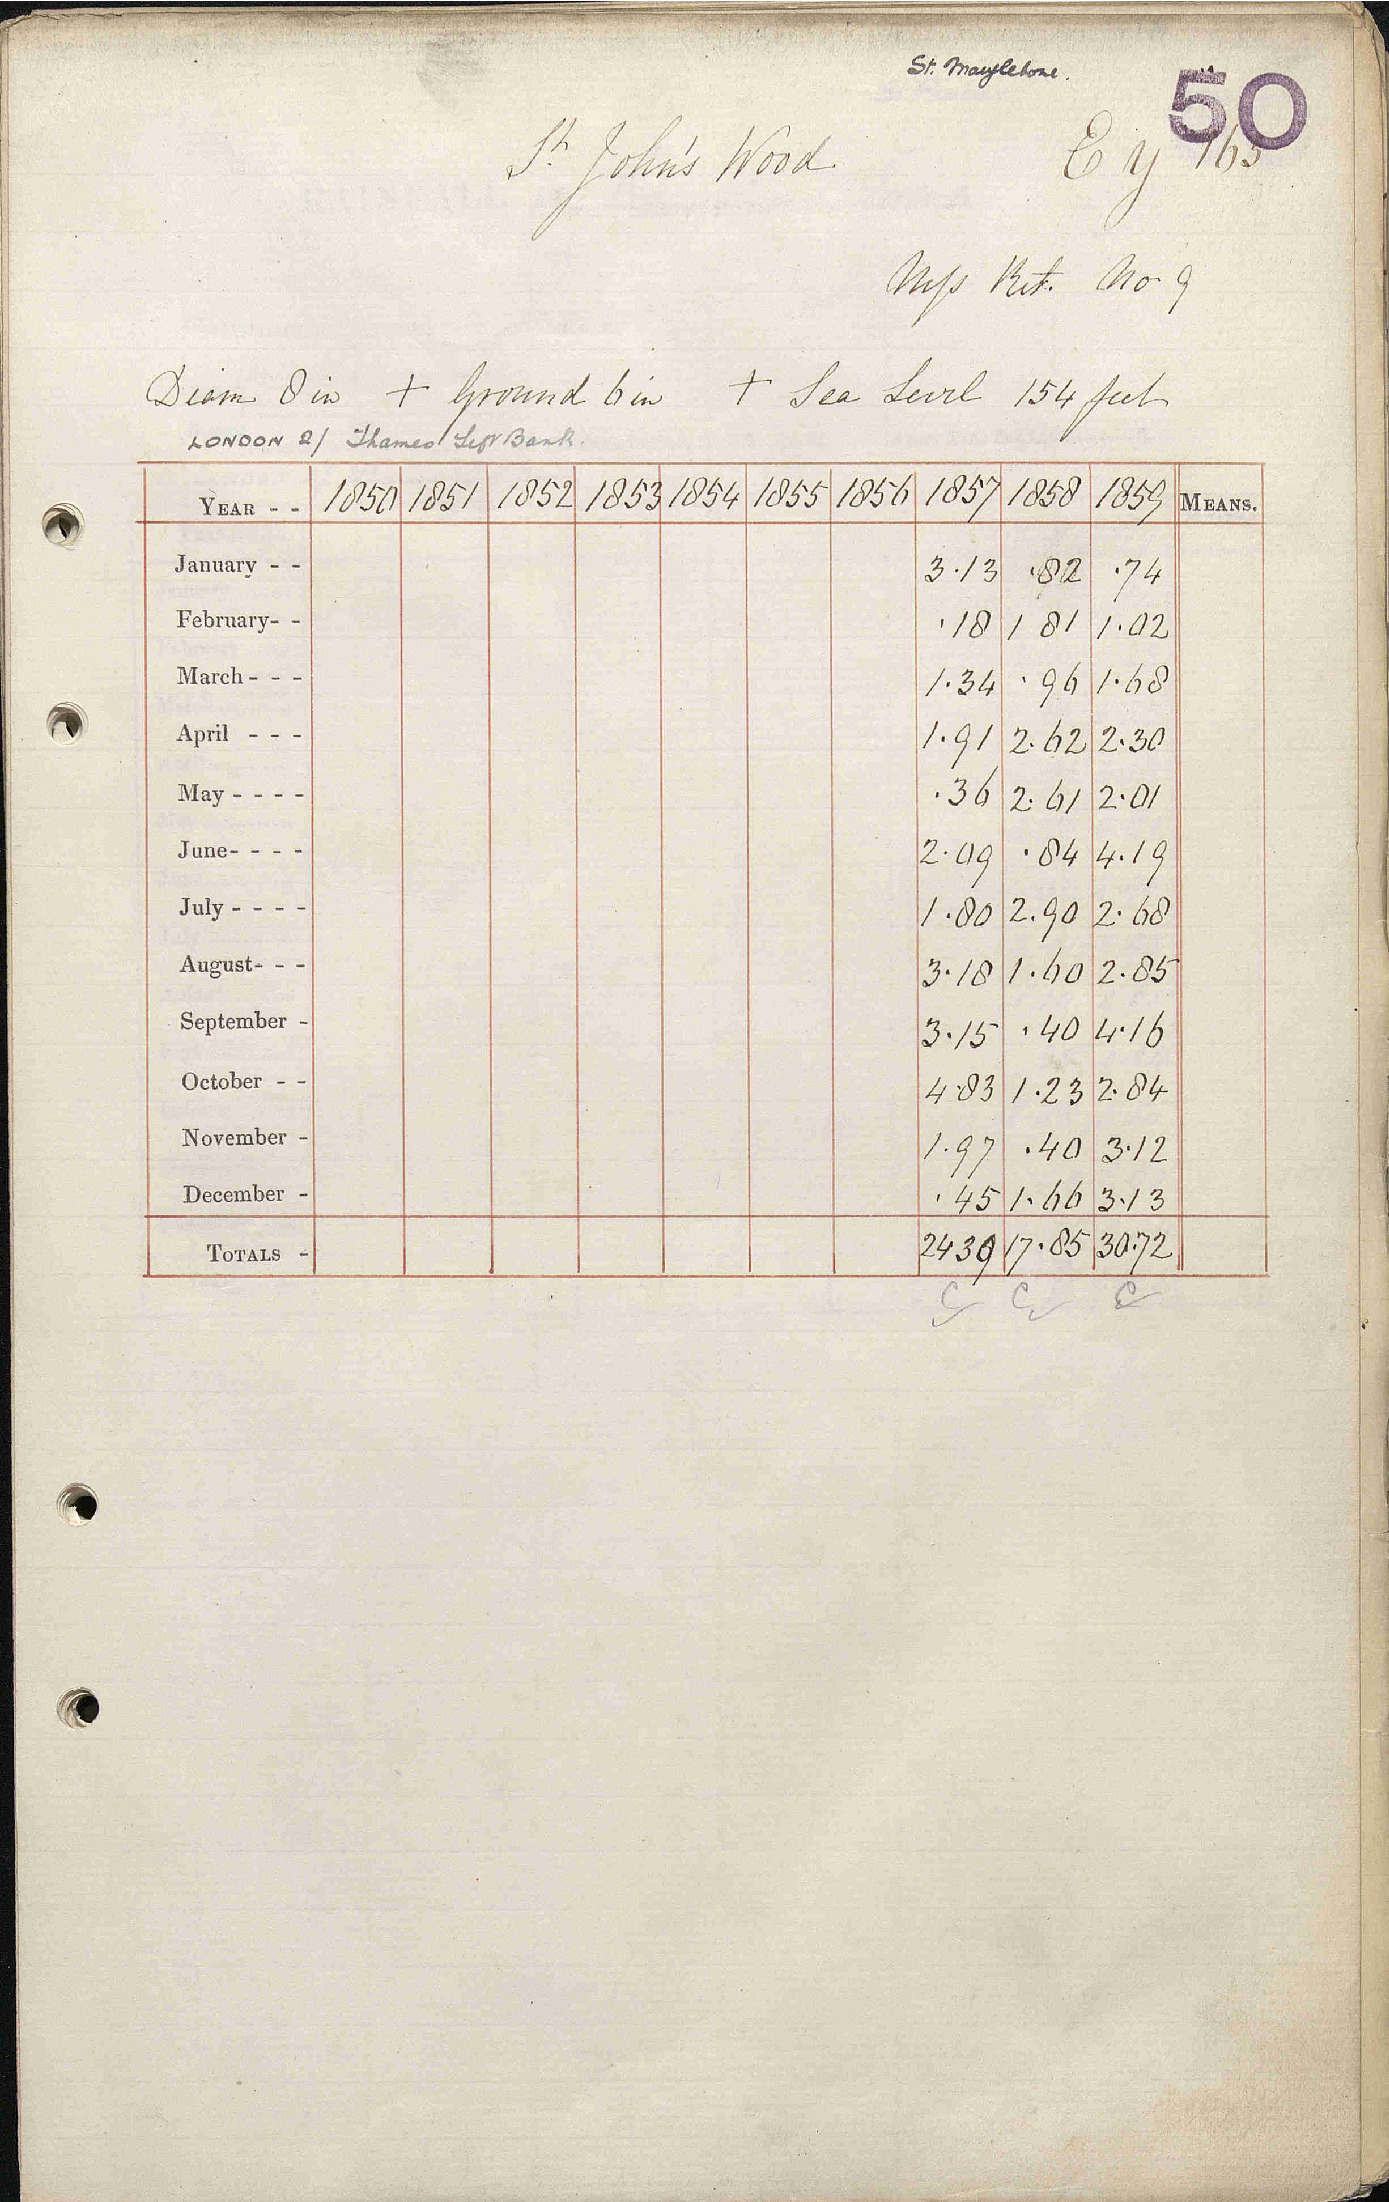 St. Marylebone.
50
St John's Wood E y 165
Mss Ret. No 9
Diam 8 in + Ground 6 in + Sea Level 154 feet
LONDON 2/ Thames Left Bank.
YEAR - - 1850 1851 1852 1853 1854 1855 1856 1857 1858 1859 MEANS.
January - - 3.13 .82 .74
February- - .18 1 81 1.02
March - - - 1.34 .96 1.68
April - - - 1.91 2.62 2.30
May - - - - .36 2.61 2.01
June- - - - 2.09 .84 4.19
July - - - - 1.80 2.90 2.68
August- - - 3.18 1.60 2.85
September - 3.15 .40 4.16
October - - 4.83 1.23 2.84
November - 1.97 .40 3.12
December - .45 1.66 3.13
TOTALS - 24 39 17.85 30.72